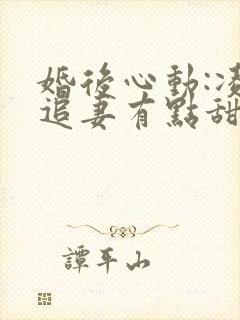 婚後心動:凌
追妻有點甜
譚平山